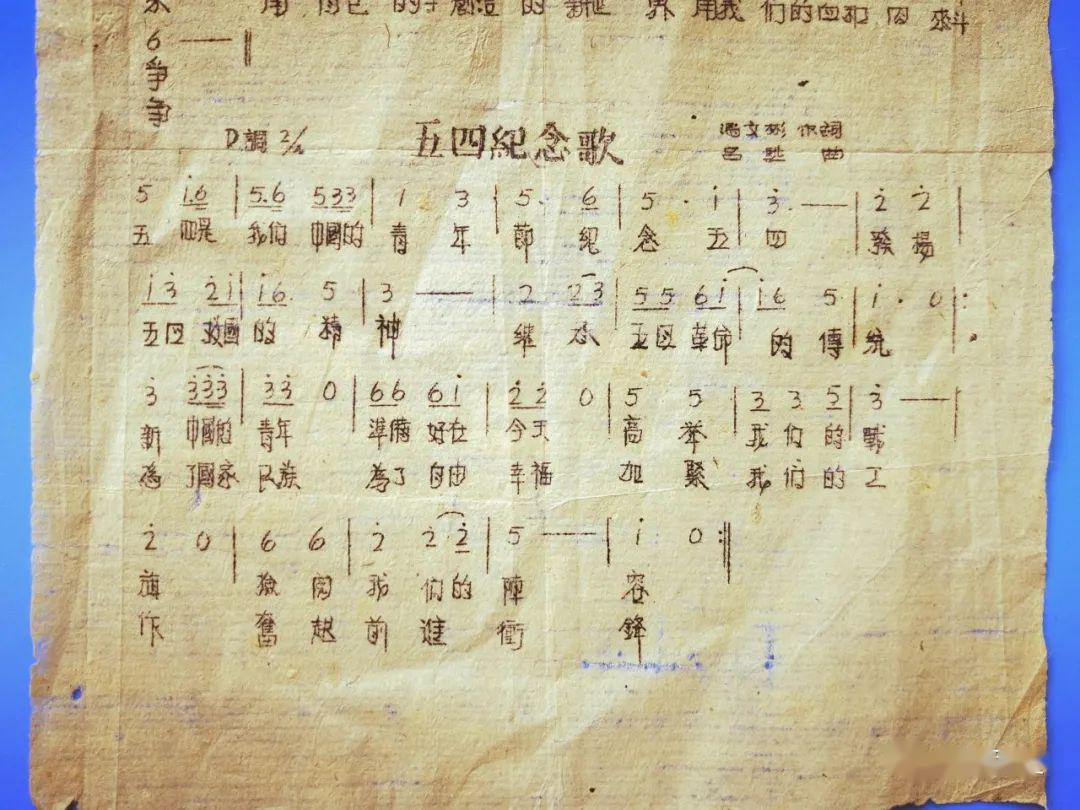 用 的 創造 的 新世 界 用我 们的血和肉 來斗
6 —— ‖
爭
爭
D調 2/4 五四紀念歌 馮文彬 作詞
呂驥 曲
5 i6 | 5·6 533 | 1 3 | 5· 6 | 5 · i | 3· —— | 2 2 |
五 四是 我们 中國的 青 年 節 紀 念 五 四 發 揚
i3 2i | i6 5 | 3 —— | 2 23 | 55 6i | i6 5 | i · 0 :
五四 救國 的 精 神 继 承 五四 革命 的 傳 統
3 333 | 33 0 | 66 6i | 22 0 | 5 5 | 3 3 5 | 3 —— |
新 中國的 青年 準備 好在 今天 高 举 我 们 的 戰
為 了國家 民族 為了 自由 幸福 加 緊 我 们 的 工
2 0 | 6 6 | 2 2 2 | 5 —— | i 0 :‖
旗 檢 閱 我 们的 陣 容
作 奮 起 前 進 衝 鋒